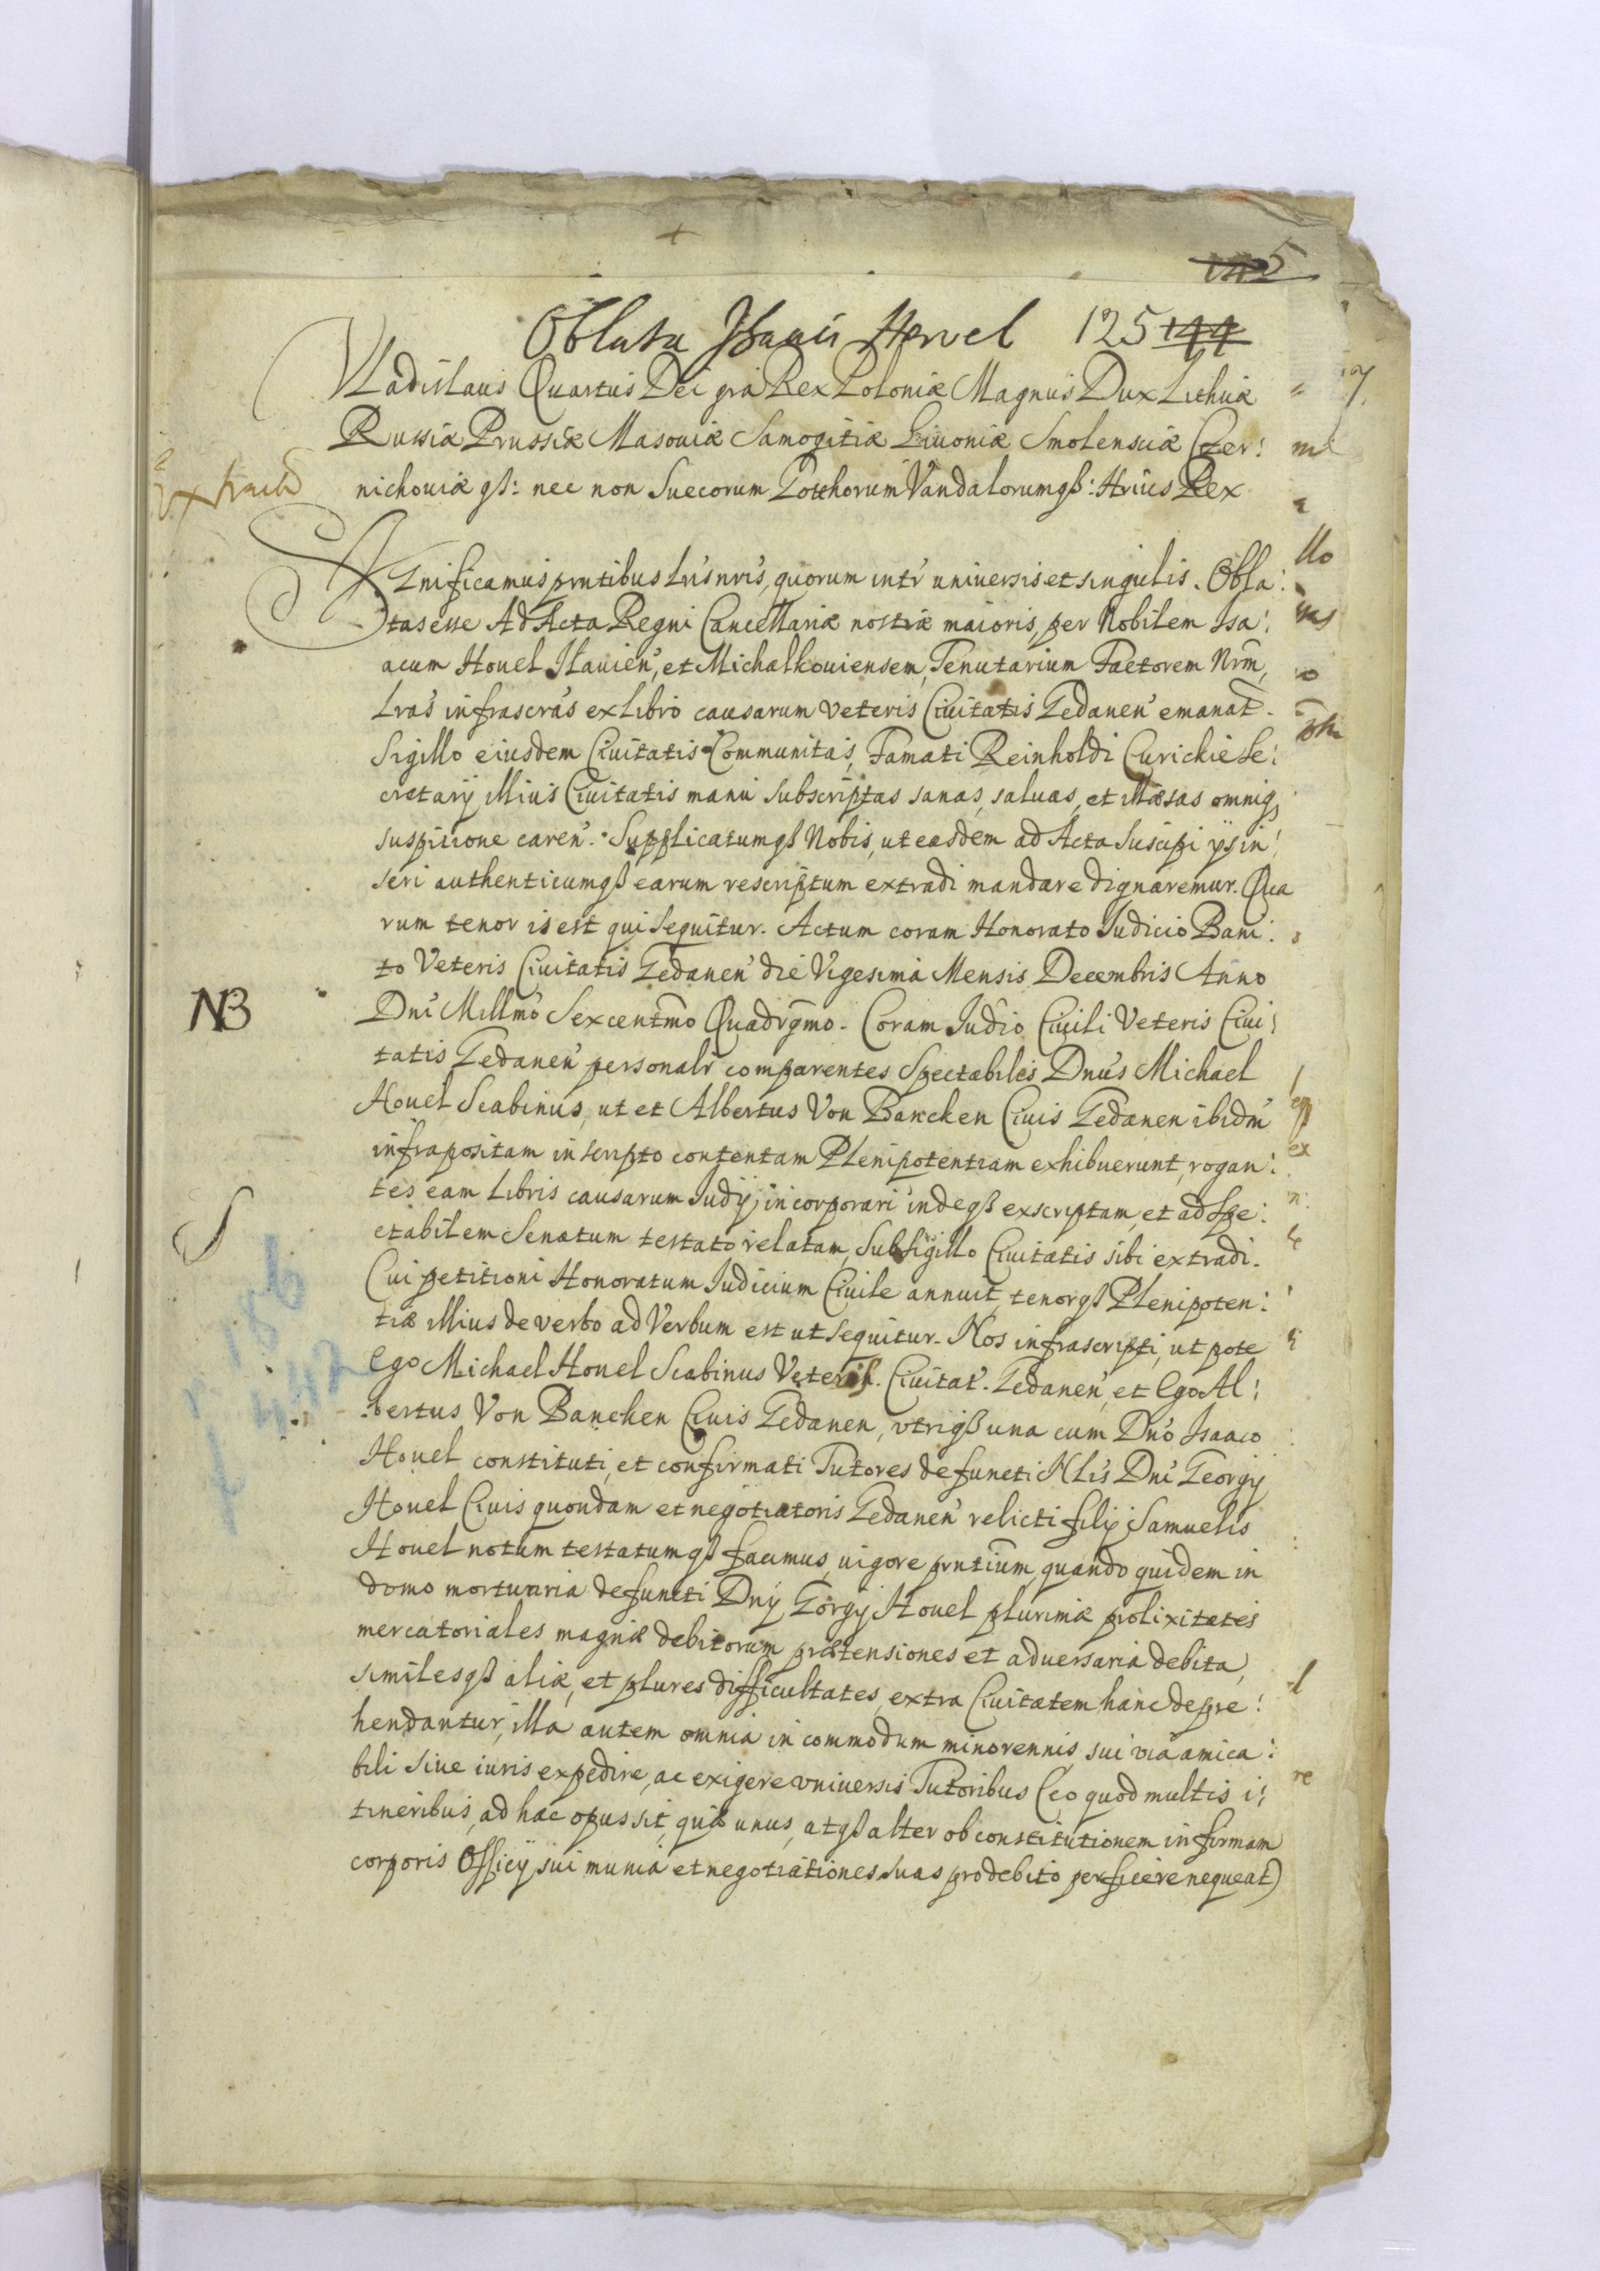 5
Oblata Isaaci Hevel 125 144
Vladislaus Quartus Dei gra Rex Poloniæ Magnus Dux Lithuæ
Russiæ Prussiæ Masouiæ Samogitiæ Liuoniæ Smolensciæ Czer:
nichouiæ qß: nec non Suecorum Gotthorum Vandalorumqß: Hrius Rex
Extract
Significamus prntibus Lris nris, quorum intr universis et singulis. Obla:
tas esse Ad Acta Regni Cancellariæ nostræ maioris, per Nobilem Isa:
acum Houel Ilauien', et Michalkouiensem, Tenutarium Factorem Nrm,
Lras infrascras ex Libro causarum veteris Ciuitatis Gedanen' emanat.
Sigillo eiusdem Ciuitatis Communitas, Famati Reinholdi Curickie Se:
cretarij illius Ciuitatis manu subscriptas sanas, saluas, et illæsas omniq
suspitione caren'. Supplicatumqß Nobis, ut easdem ad Acta Suscipi ijs in:
seri authenticumqß earum rescriptum extradi mandare dignaremur. Qua
rum tenor is est qui Sequitur. Actum coram Honorato Iudicio Bani:
to Veteris Ciuitatis Gedanen' die Vigesima Mensis Decembris Anno
NB
Dni Millmo Sexcentmo Quadrgmo. Coram Iudio Ciuili Veteris Ciui:
tatis Gedanen' personalr comparentes Spectabiles Dnus Michael
Houel Scabinus, ut et Albertus Von Bancken Ciuis Gedanen ibidm
infrapositam in scripto contentam Plenipotentiam exhibuerunt, rogan:
tes eam Libris causarum Iudij, incorporari indeqß exscriptam, et ad Spe:
ctabilem Senatum testato relatam, Sub Sigillo Ciuitatis sibi extradi.
Cui petitioni Honoratum Iudicium Ciuile annuit, tenorqß Plenipoten:
tiæ illius de verbo ad Verbum est ut Sequitur. Nos infrascripti, ut pote
Ego Michael Houel Scabinus Veteris. Ciuitat'. Gedanen', et Ego Al:
bertus Von Bancken Ciuis Gedanen, vtriqß una cum Dno Isaaco
Houel constituti, et confirmati Tutores defuncti Nlis Dni Georgij
Houel Ciuis quondam et negotiatoris Gedanen' relicti filij Samuelis
Houel notum testatumqß facimus, uigore prntium, quando quidem in
domo mortuaria defuncti Dnij Görgij Houel plurimæ prolixitates
mercatoriales magnæ debitorum prætensiones et aduersaria debita,
similesqß aliæ, et plures difficultates, extra Ciuitatem hanc depre:
hendantur, illa autem omnia in commodum minorennis sui via amica:
bili Siue iuris expedire, ac exigere vniuersis Tutoribus (eo quod multis i:
tineribus, ad hac opus sit, quæ unus, atqß alter ob constitutionem infirmam
corporis Officij sui munia et negotiationes suas pro debito perficere nequeat)